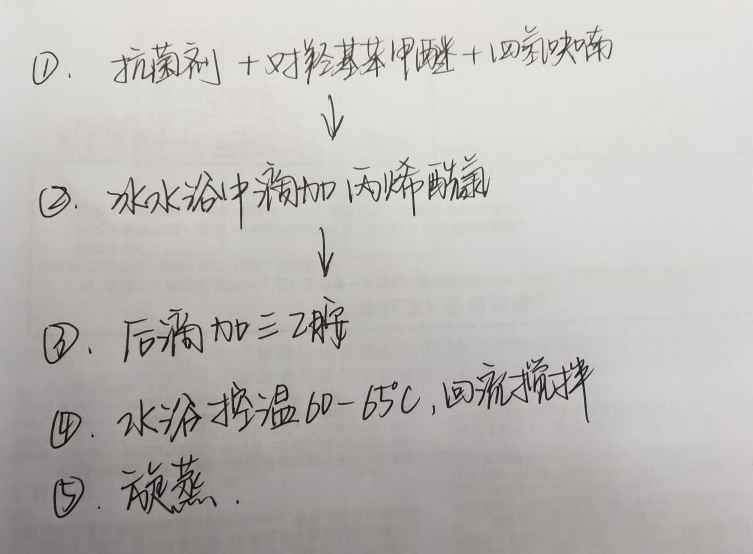 ①. 抗菌剂 + 对羟基苯甲醚 + 四氢呋喃
↓
②. 冰水浴中滴加丙烯酰氯
↓
③. 后滴加三乙胺
④. 水浴控温60-65℃,回流搅拌
⑤. 旋蒸.